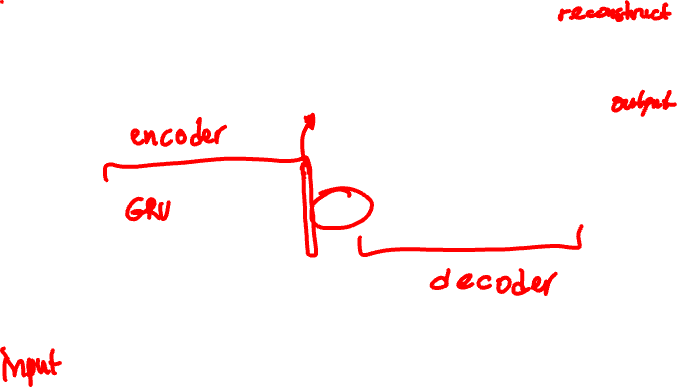 reconstruct
output
encoder
GRU
decoder
Input